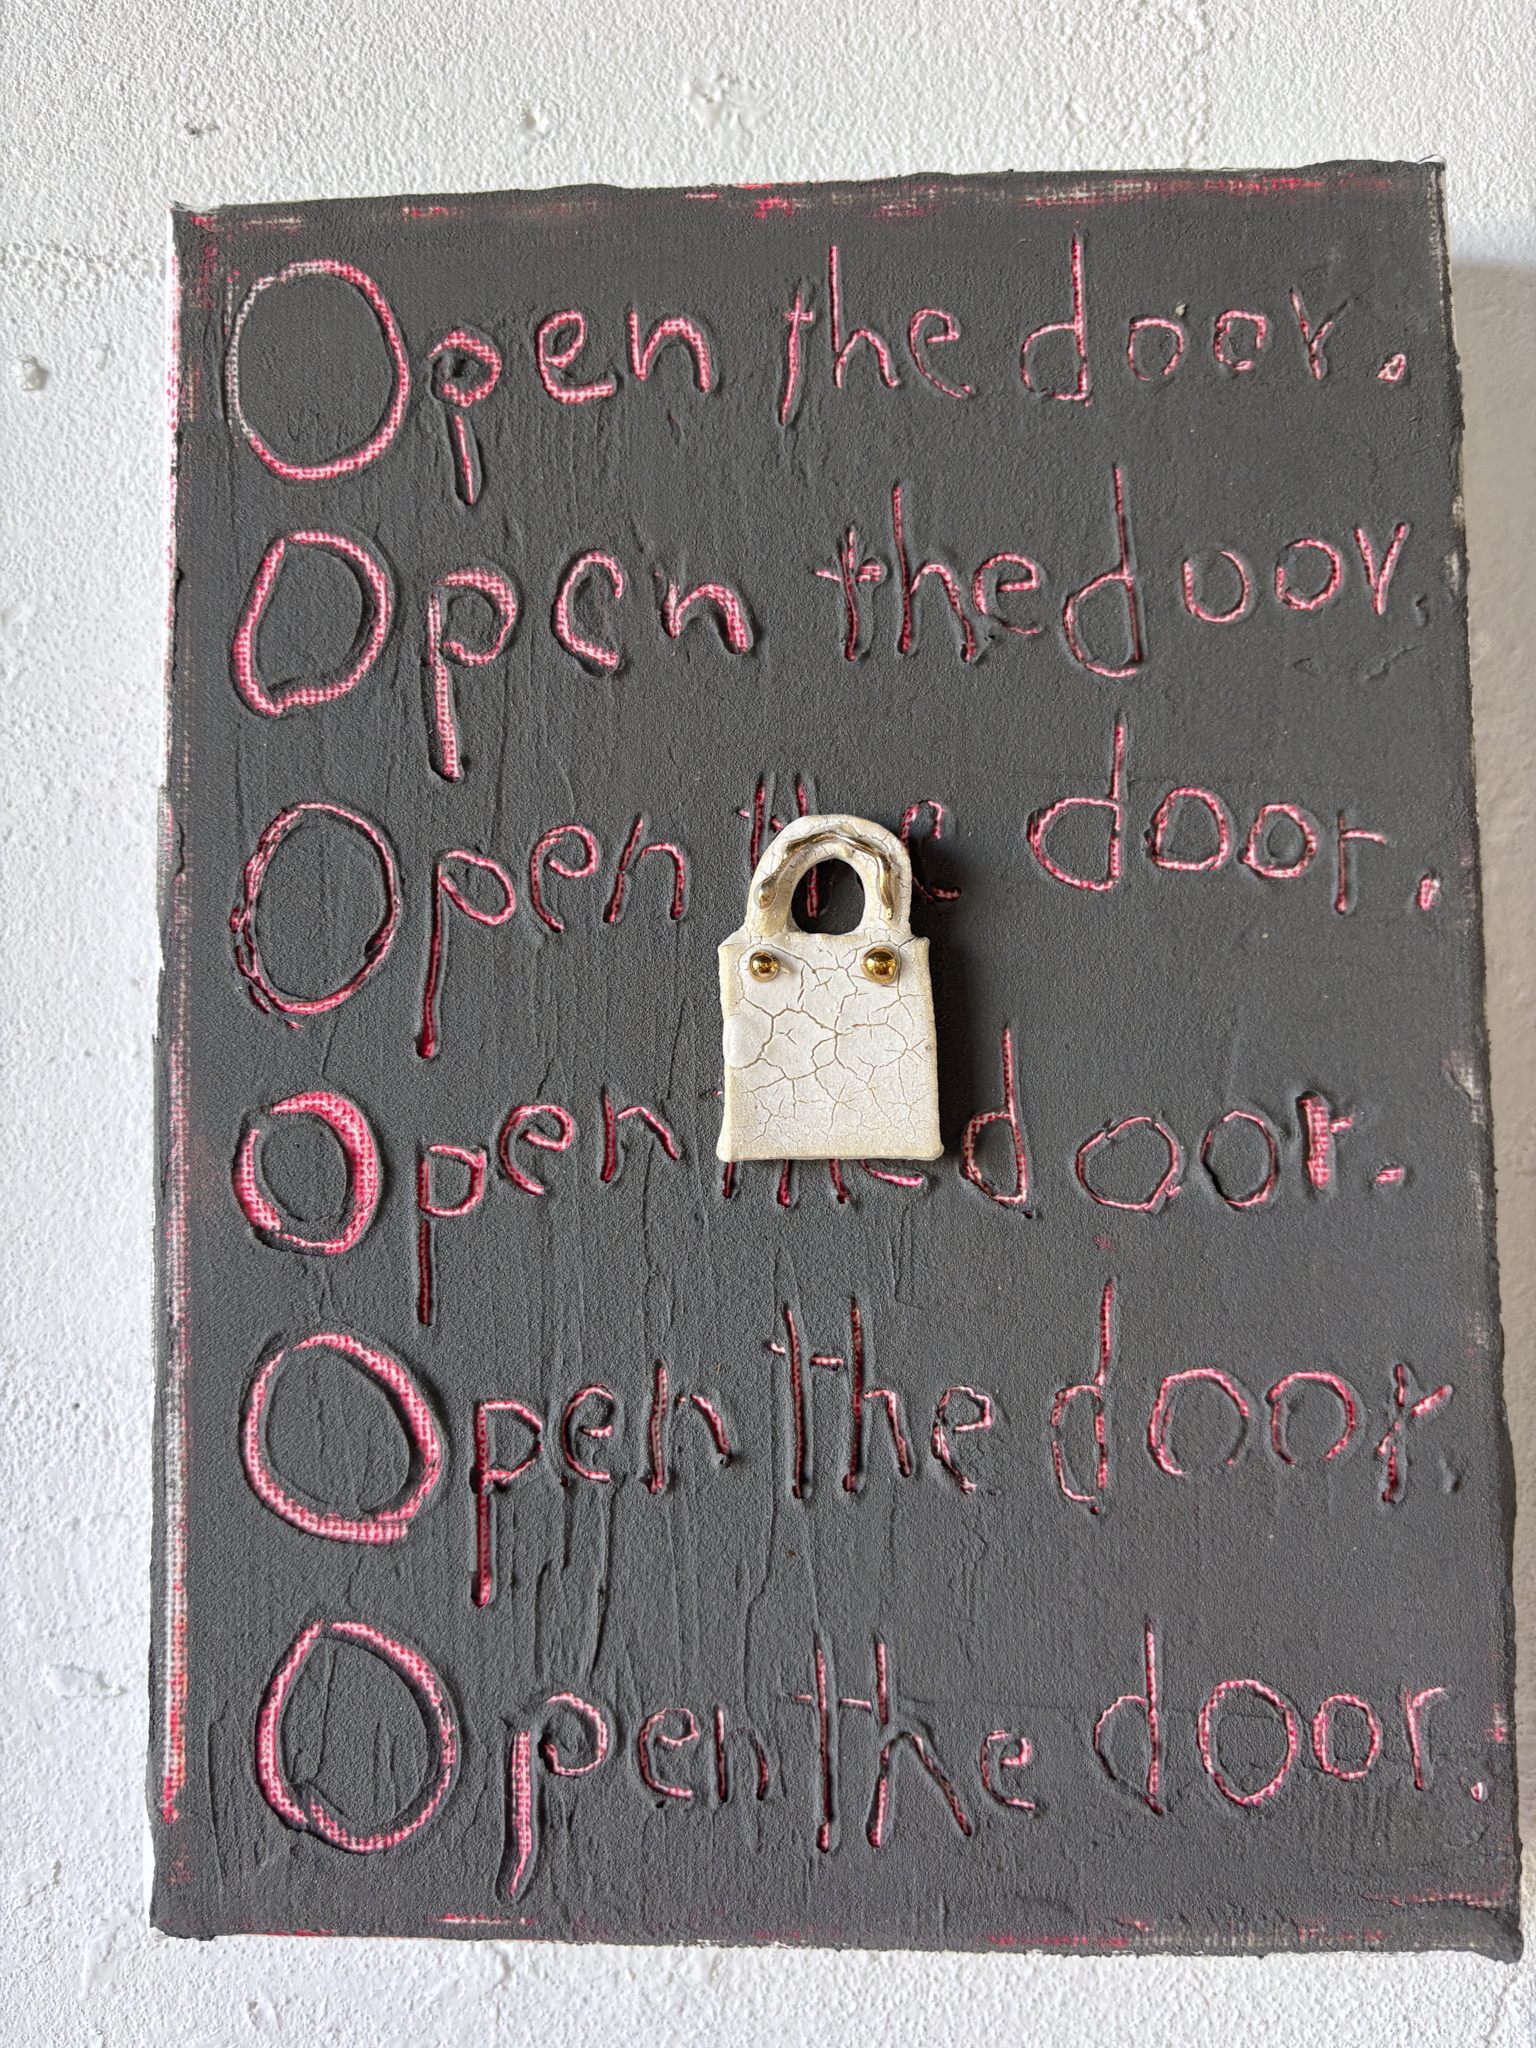 Open the door.
Open the door.
Open the door.
Open the door.
Open the door.
Open the door.